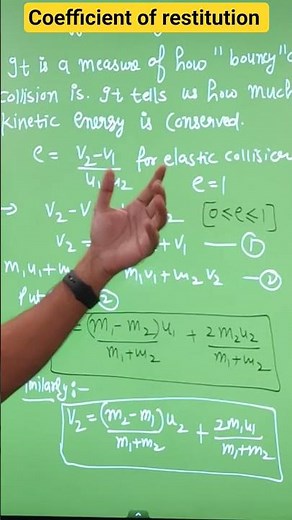 Coefficient of restitution
It is a measure of how "bouncy"
collision is. It tells us how much
kinetic energy is conserved.
e = (V₂-V₁)/(u₁ u₂) for elastic collision
e=1
→ V₂-V [0≤e≤1]
V₂ = + V₁ — ①
m₁u₁ + m₁V₁ + m₂V₂ — ②
Put ②
= (m₁-m₂)u₁/(m₁+m₂) + 2m₂u₂/(m₁+m₂)
imilarly:-
V₂ = (m₂-m₁)u₂/(m₁+m₂) + 2m₁u₁/(m₁+m₂)